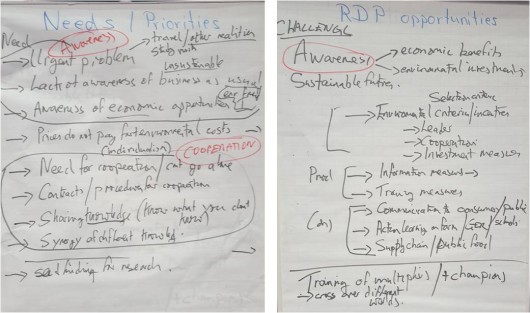 Needs / Priorities
Need
Awareness
travel / other realities
stop with
Urgent problem
unsustainable
Lack of awareness of business as usual
Awareness of economic opportunities
Prices do not pay for environmental costs
(individualism)
COOPERATION
Need for cooperation / can't go alone
Contracts / procedures for cooperation
Sharing knowledge (know what you don't know)
Synergy of different knowledge.
seed funding for research.
RDP opportunities
CHALLENGE
Awareness
economic benefits
environmental investments
Sustainable futures.
Selection criteria
Environmental criteria/incentives
Leader
Cooperation
Investment measures
Information measures
Training measures
Communication to consumer/public
Action learning on farm / / schools
Supply chain / public food
Training of multipliers / +champions
cross over different worlds.